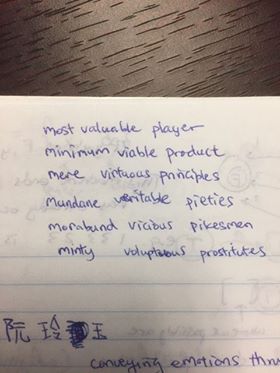 most valuable player
minimum viable product
mere virtuous principles
mundane veritable pieties
morabund vicious pikesmen
minty voluptuous prostitutes
阮 玲 玉
conveying emotions thru